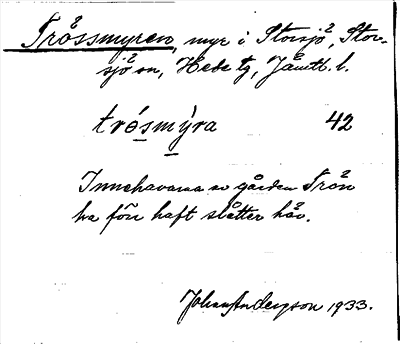 Tråssmyren, myr i Storsjö, Stor-
sjö sn, Hede tg, Jämtl. l.
trósmỳra 42
Innehavarna av gården Trån
ha förr haft slåtter här.
Johan Anderzson 1933.